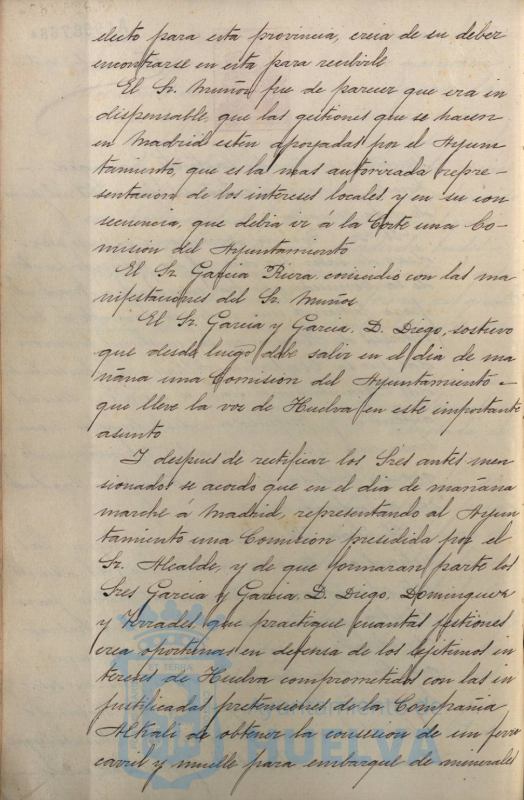 electo para esta provincia, creia de su deber
encontrarse en esta para recibirle
El Sr. Muñoz fue de parecer que era in
dispensable que las gestiones que se hacen
en Madrid esten apoyadas por el Ayun-
tamiento, que es la mas autorizada repre-
sentacion de los intereses locales y en su con
secuencia, que debia ir á la Corte una Co-
mision del Ayuntamiento
El Sr. Garcia Riera coincidió con las ma
nifestaciones del Sr. Muñoz
El Sr. Garcia y Garcia, D. Diego, sostuvo
que desde luego debe salir en el dia de ma
ñana una Comision del Ayuntamiento -
que lleve la voz de Huelva en este importante
asunto
I despues de rectificar los Sres antes men
cionados se acordó que en el dia de mañana
marche á Madrid, representando al Ayun
tamiento una Comision presidida por el
Sr. Alcalde, y de que formaran parte los
Sres Garcia y Garcia, D. Diego, Dominguez
y Terrades, que practique cuantas gestiones
crea oportunas en defensa de los lejitimos in
tereses de Huelva comprometidos con las in
justificadas pretensiones de la Compañia
Alkali de obtener la concesion de un ferro
carril y muelle para embarque de minerales
ET TERRAE
Ayuntamiento de
HUELVA